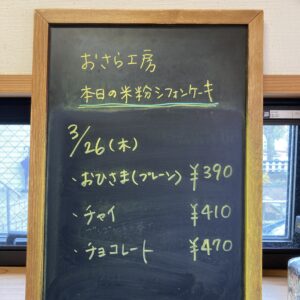 おさら工房
本日の米粉シフォンケーキ
3/26(木)
・おひさま(プレーン) ¥390
・チャイ ¥410
・チョコレート ¥470